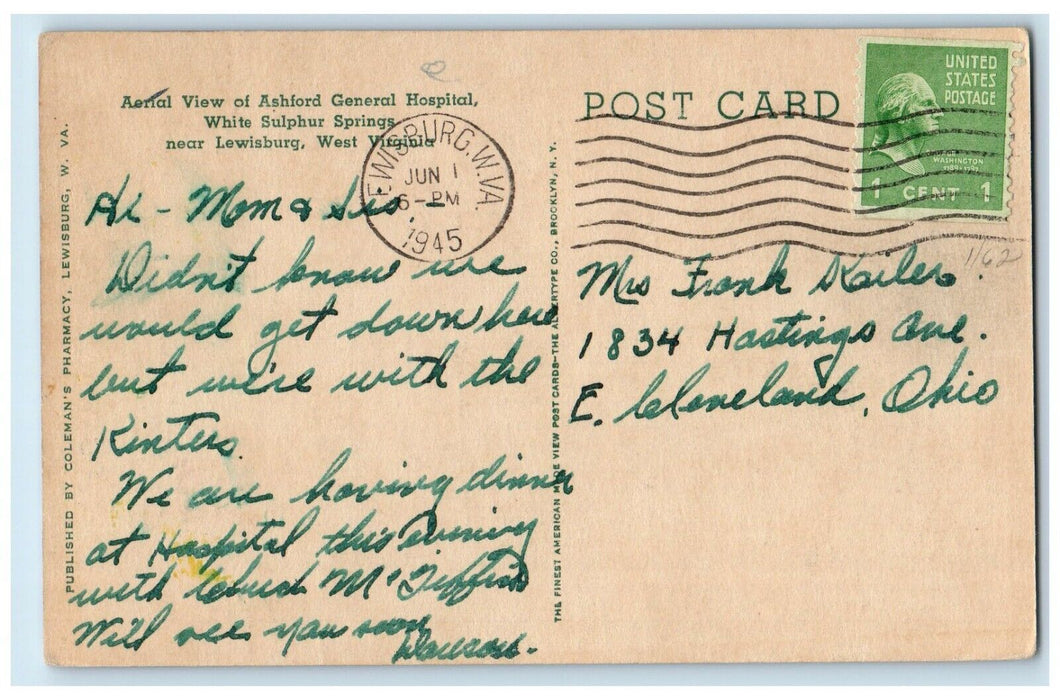 Aerial View of Ashford General Hospital,
White Sulphur Springs
near Lewisburg, West Virginia
POST CARD
UNITED
STATES
POSTAGE
WASHINGTON
1789-1797
1 CENT 1
LEWISBURG.W.VA.
JUN 1
6-PM
1945
162
Hi - Mom & Sis -
Didn't know we
would get down here
but we're with the
Kinters.
We are having dinner
at Hospital this evening
with Chuck
Will see you soon
Mrs Frank
1834 Hastings Ave.
E. Cleveland, Ohio
PUBLISHED BY COLEMAN'S PHARMACY, LEWISBURG, W. VA.
THE FINEST AMERICAN MADE VIEW POST CARDS-THE ALBERTYPE CO., BROOKLYN, N. Y.